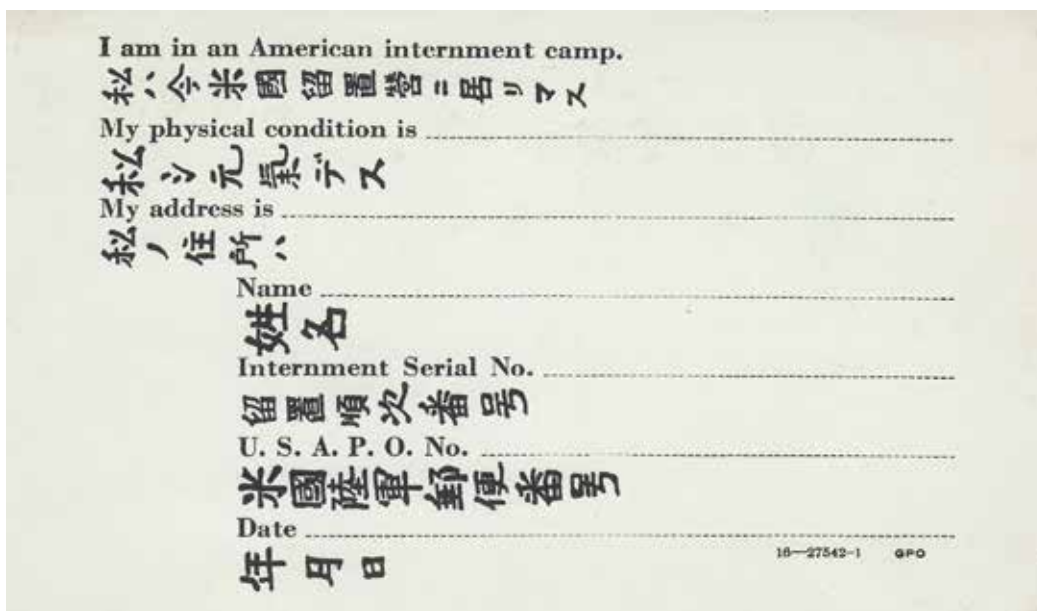 I am in an American internment camp.
私ハ今米國留置營ニ居リマス
My physical condition is
私ハ元氣デス
My address is
私ノ住所ハ
Name
姓名
Internment Serial No.
留置順次番号
U. S. A. P. O. No.
米國陸軍郵便番号
Date
年月日
16—27542-1 GPO